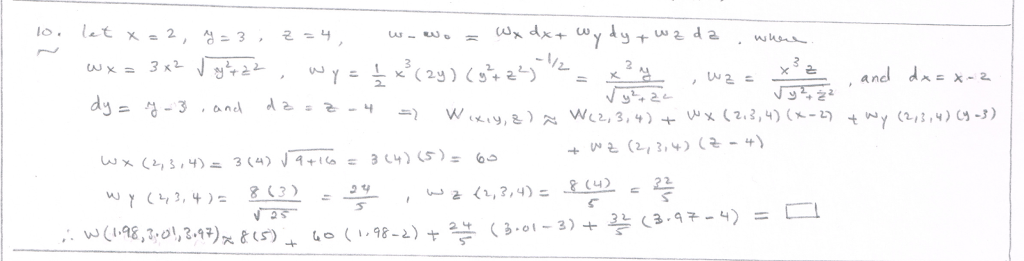 10. let x = 2, y = 3, z = 4, w - w₀ = wx dx + wy dy + wz dz. where
wx = 3x² √(y²+z²), wy = 1/2 x³ (2y) (y²+z²)^(-1/2) = x³y/√(y²+z²), wz = x³z/√(y²+z²), and dx = x-2
dy = y-3, and dz = z-4 ⇒ W(x,y,z) ≈ W(2,3,4) + wx (2,3,4) (x-2) + wy (2,3,4) (y-3)
+ wz (2,3,4) (z-4)
wx (2,3,4) = 3(4) √(9+16) = 3(4)(5) = 60
wy (2,3,4) = 8(3)/√25 = 24/5, wz (2,3,4) = 8(4)/5 = 32/5
∴ W(1.98, 3.01, 3.97) ≈ 8(5) + 60 (1.98-2) + 24/5 (3.01-3) + 32/5 (3.97-4) = □